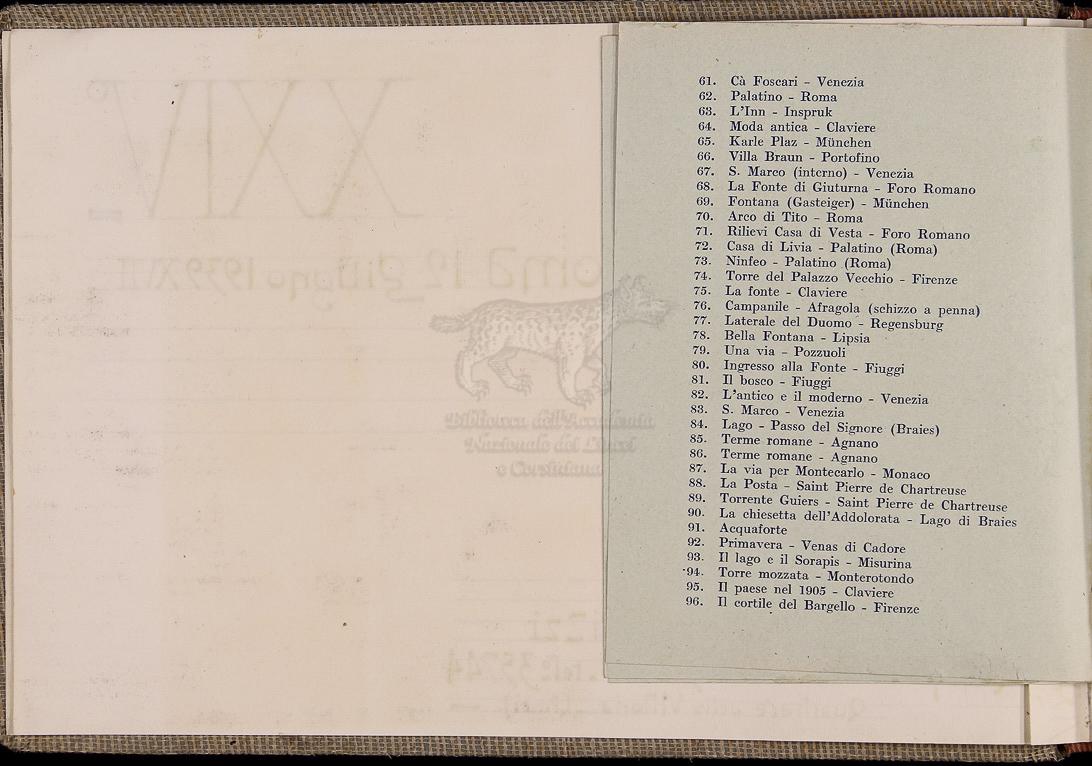 61. Cà Foscari - Venezia
62. Palatino - Roma
63. L'Inn - Inspruk
64. Moda antica - Claviere
65. Karle Plaz - München
66. Villa Braun - Portofino
67. S. Marco (interno) - Venezia
68. La Fonte di Giuturna - Foro Romano
69. Fontana (Gasteiger) - München
70. Arco di Tito - Roma
71. Rilievi Casa di Vesta - Foro Romano
72. Casa di Livia - Palatino (Roma)
73. Ninfeo - Palatino (Roma)
74. Torre del Palazzo Vecchio - Firenze
75. La fonte - Claviere
76. Campanile - Afragola (schizzo a penna)
77. Laterale del Duomo - Regensburg
78. Bella Fontana - Lipsia
79. Una via - Pozzuoli
80. Ingresso alla Fonte - Fiuggi
81. Il bosco - Fiuggi
82. L'antico e il moderno - Venezia
83. S. Marco - Venezia
84. Lago - Passo del Signore (Braies)
85. Terme romane - Agnano
86. Terme romane - Agnano
87. La via per Montecarlo - Monaco
88. La Posta - Saint Pierre de Chartreuse
89. Torrente Guiers - Saint Pierre de Chartreuse
90. La chiesetta dell'Addolorata - Lago di Braies
91. Acquaforte
92. Primavera - Venas di Cadore
93. Il lago e il Sorapis - Misurina
94. Torre mozzata - Monterotondo
95. Il paese nel 1905 - Claviere
96. Il cortile del Bargello - Firenze
XXIV
oma 1º giugno 1939
Biblioteca dell'Accademia
Nazionale dei Lincei
e Corsiniana